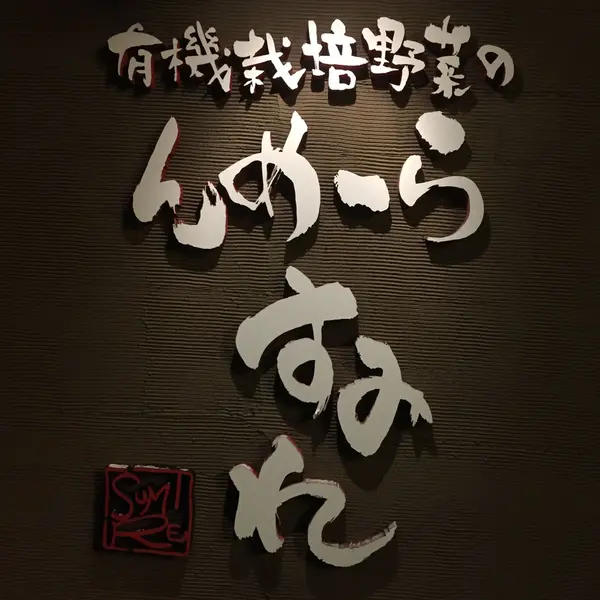 有機栽培野菜の
らーめん
すみ
れ
SUMI
RE